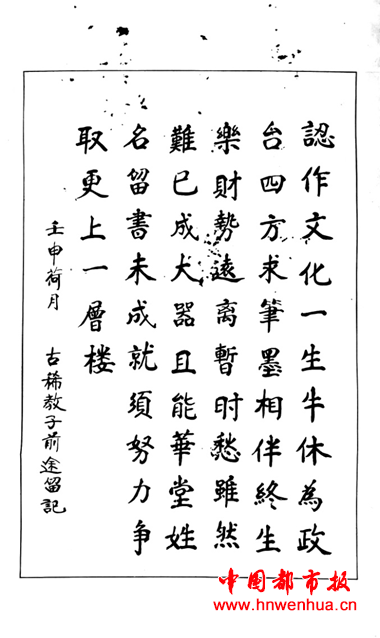 認作文化一生牛休為政
台四方求筆墨相伴終生
樂財勢遠离暫时愁雖然
難已成大器且能華堂姓
名留書未成就須努力争
取更上一層楼
壬申荷月 古稀教子前途留記
中国都市报
www.hnwenhua.cn